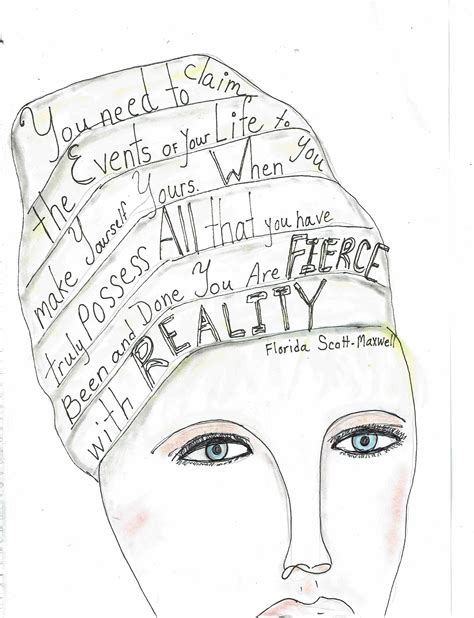 You need to claim
the Events of your Life to
make Yourself Yours. When you
truly Possess All that you have
Been and Done You Are FIERCE
with REALITY
Florida Scott-Maxwell